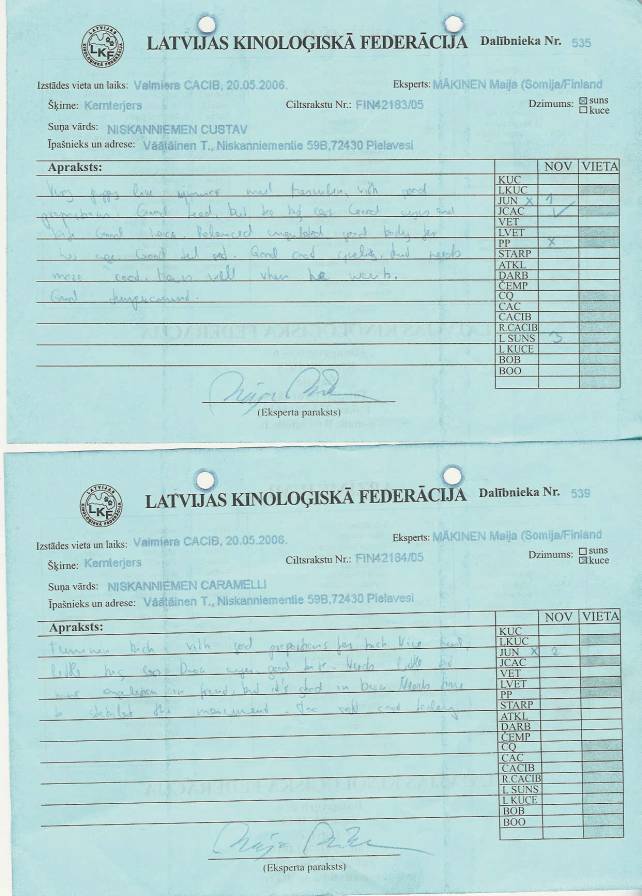 LATVIJAS KINOLOĢISKĀ FEDERĀCIJA Dalībnieka Nr. 535
LKF
Izstādes vieta un laiks: Valmiera CACIB, 20.05.2006. Eksperts: MĀKINEN Maija (Somija/Finland
Šķirne: Kernterjers Ciltsrakstu Nr.: FIN42183/05 Dzimums: ☒ suns
☐ kuce
Suņa vārds: NISKANNIEMEN CUSTAV
Īpašnieks un adrese: Väätäinen T., Niskanniementie 59B,72430 Pielavesi
Apraksts: NOV VIETA
KUC
LKUC
JUN x 1
JCAC ✓
VET
LVET
PP x
STARP
ATKL
DARB
ČEMP
CQ
CAC
CACIB
R.CACIB
L SUNS 3
L KUCE
BOB
BOO
good
proportions. Good head, but too big ears. Good
Good Balanced angulated, good body for
his age. Good tail Good coat quality, but needs
more coat. well when he wants.
Good temperament.
(Eksperta paraksts)
LATVIJAS KINOLOĢISKĀ FEDERĀCIJA Dalībnieka Nr. 539
LKF
Izstādes vieta un laiks: Valmiera CACIB, 20.05.2006. Eksperts: MĀKINEN Maija (Somija/Finland
Šķirne: Kernterjers Ciltsrakstu Nr.: FIN42184/05 Dzimums: ☐ suns
☒ kuce
Suņa vārds: NISKANNIEMEN CARAMELLI
Īpašnieks un adrese: Väätäinen T., Niskanniementie 59B,72430 Pielavesi
Apraksts: NOV VIETA
KUC
LKUC
JUN x 2
JCAC
VET
LVET
PP
STARP
ATKL
DARB
ČEMP
CQ
CAC
CACIB
R.CACIB
L SUNS
L KUCE
BOB
BOO
with good proportions Nice head,
little big ears. good bite. Needs little bit
angulation in front, but it's good in Needs time
to the movement.
(Eksperta paraksts)